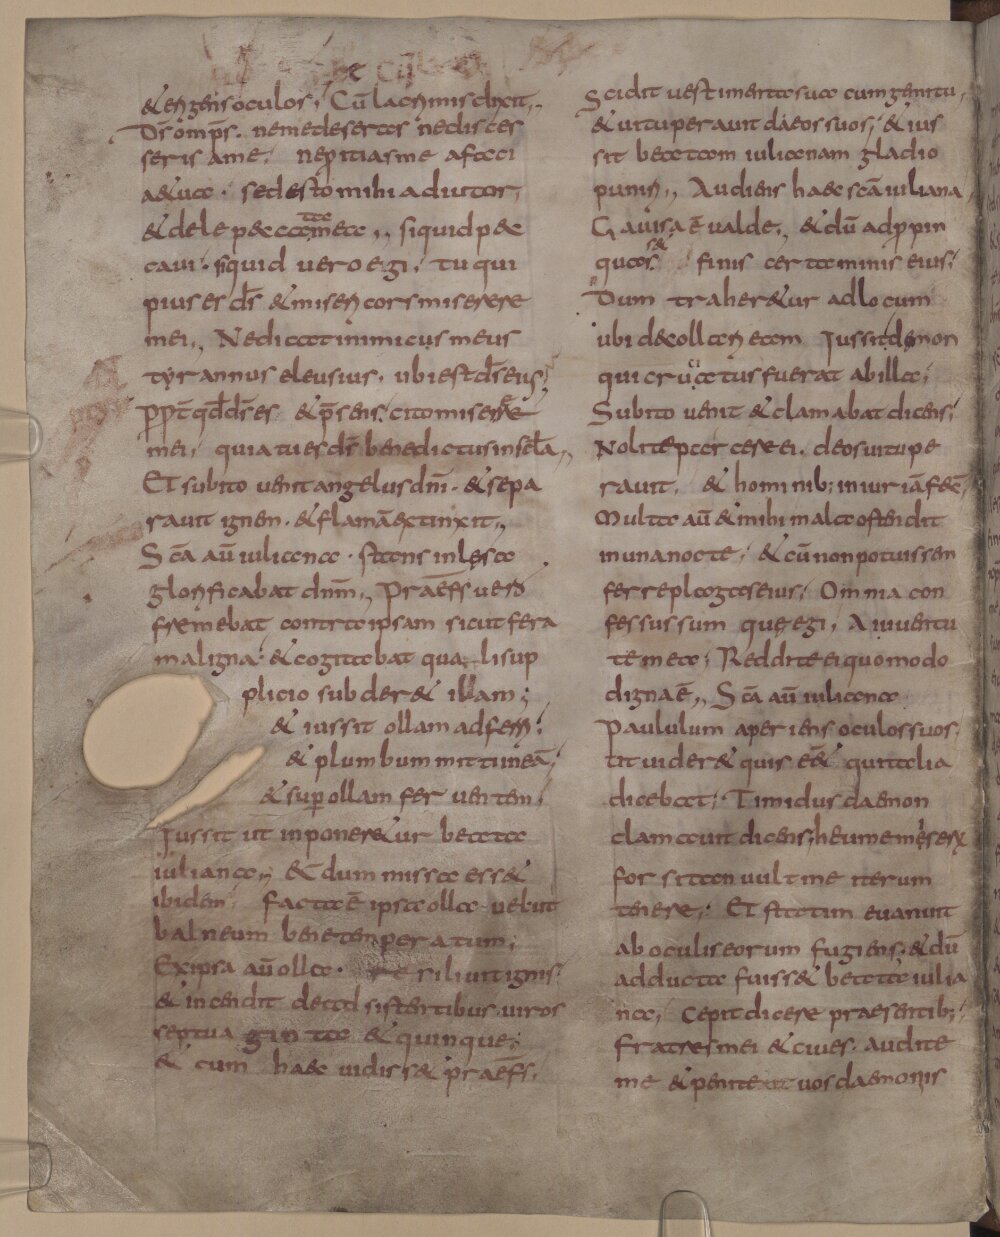 & erigens oculos; Cū lacrimis dixit;
D̄s omp̄s. ne me deseras ne disces
seris a me; ne patias me a facie
a&ua. sed esto mihi adiutor,
& dele peccata mea;, si quid pec
caui. si quid uero egi; tu qui
pius es d̄s & misericors miserere
mei;, Ne dicat inimicus meus
tyrannus eleusius. ubi est d̄s eius;
ꝓpt̄ qđ d̄s es & p̄sens, cito miserere
mei; quia tu es d̄s benedictus in secl̄a;,
Et subito uenit angelus dn̄i. & sepa
rauit ignem. & flamā extinxit;,
Sc̄a aū iuliana. stans inlesa
glorificabat dn̄m;, Praef̄s uero
fremebat contra ipsam sicut fera
maligna. & cogitabat quali sup
plicio subder& illam;
& iussit ollam adferri;
& plumbum mitti in eā;
& sup ollam feruentem;
Iussit ut inponer&ur beata
iuliana;, & dum missa ess&
ibidem; facta ē ipsa olla uelut
balneum bene temperatum;
Ex ipsa aū olla. re siliuit ignis;
& incendit de adsistentibus uiros
septuaginta & quinque;
& cum haec uidiss& praef̄s;
Scidit uestimenta sua cum gemitu,
& uituperauit deos suos; & ius
sit beatam iulianam gladio
puniri;, Audiens haec sc̄a iuliana
Gauisa ē ualde;, & dū adpropin
quass& finis certaminis eius;
Dum traher&ur ad locum
ubi decollari eam iussit daemon
qui cruciatus fuerat ab illa;
Subito uenit & clamabat dicens;
Nolite parcere ei. deos uitupe
rauit, & hominib; iniuriā fec̄;
Multa aū & mihi mala ostendit
in una nocte; & cū non potuissem
ferre plagas eius; Omnia con
fessus sum que egi, A iuuentu
te mea; Reddite ei quomodo
digna ē;, Sc̄a aū iuliana
Paululum aperiens oculos suos,
ut uider& quis ē& qui talia
dicebat; Timidus daemon
clamauit dicens; heu me miserx
forsitan uult me iterum
tenere; Et statim euanuit
ab oculis eorum fugiens. & dū
adducta fuiss& beata iulia
na; Cepit dicere praesentib;
fratres mei & ciues. audite
me & penite& uos daemoniis